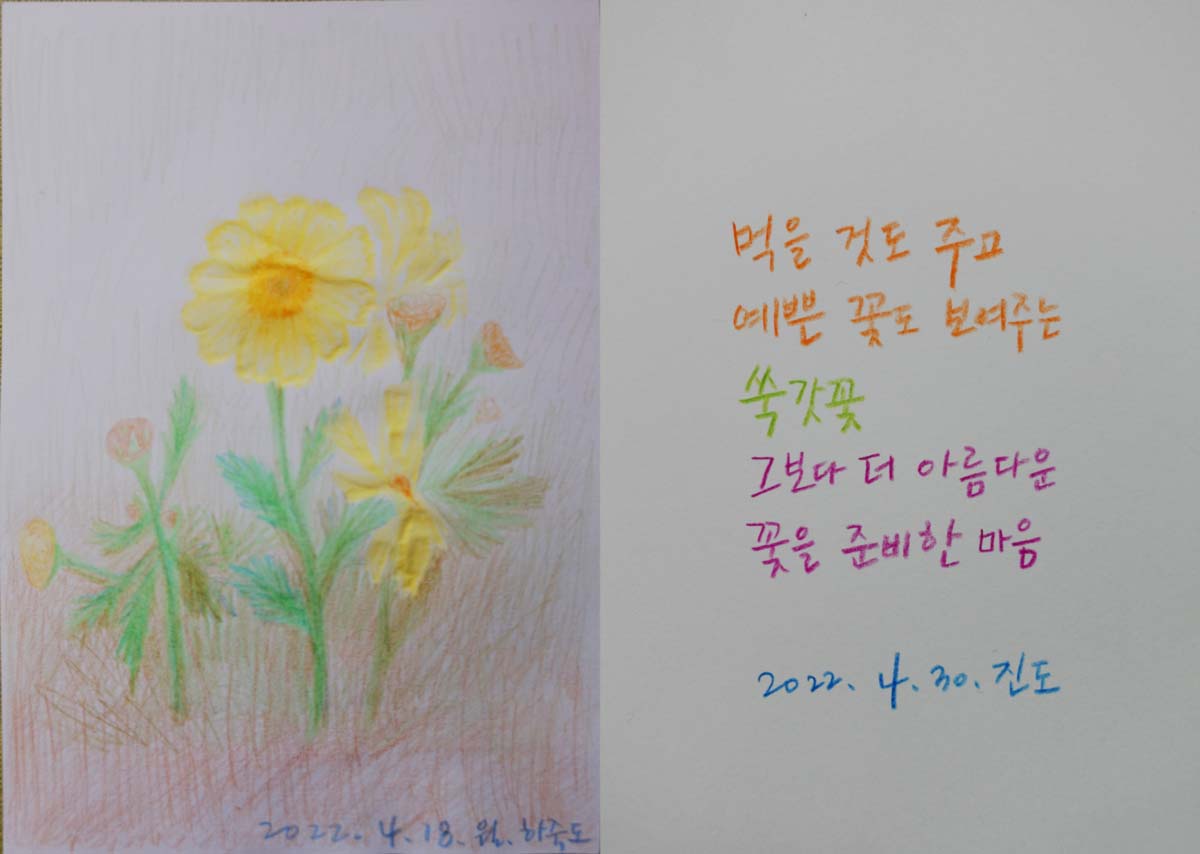 2022. 4. 18. 월. 하죽도
먹을 것도 주고
예쁜 꽃도 보여주는
쑥갓꽃
그보다 더 아름다운
꽃을 준비한 마음
2022. 4. 30. 진도